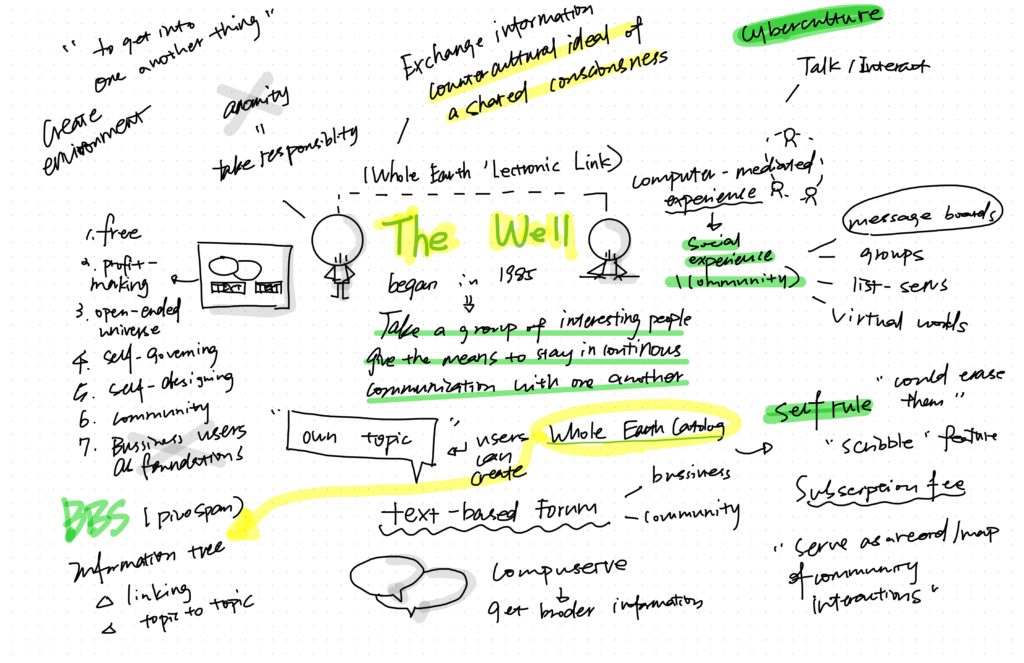 " to get into
one another thing"
Create
environment
anomity
"
take responsiblty
Exchange information
countercultural ideal of
a shared consciousness
(Whole Earth 'Lectronic Link)
cyberculture
Talk / Interact
computer-mediated
experience
social
experience
(community)
message boards
groups
list-servs
virtual worlds
The Well
began in 1985
Take a group of interesting people
give the means to stay in continous
communization with one another
1. free
2. profit-
making
3. open-ended
universe
4. self-governing
5. self-designing
6. community
7. Bussiness users
foundations
TEXT TEXT
" own topic "
users
can
create
Whole Earth Catalog
self rule
"could erase
them"
"scribble" feature
Subscerption fee
" serve as a record/map
of community
interactions "
text-based Forum
bussiness
community
BBS (picospan)
Information tree
linking
topic to topic
compuserve
get broder information